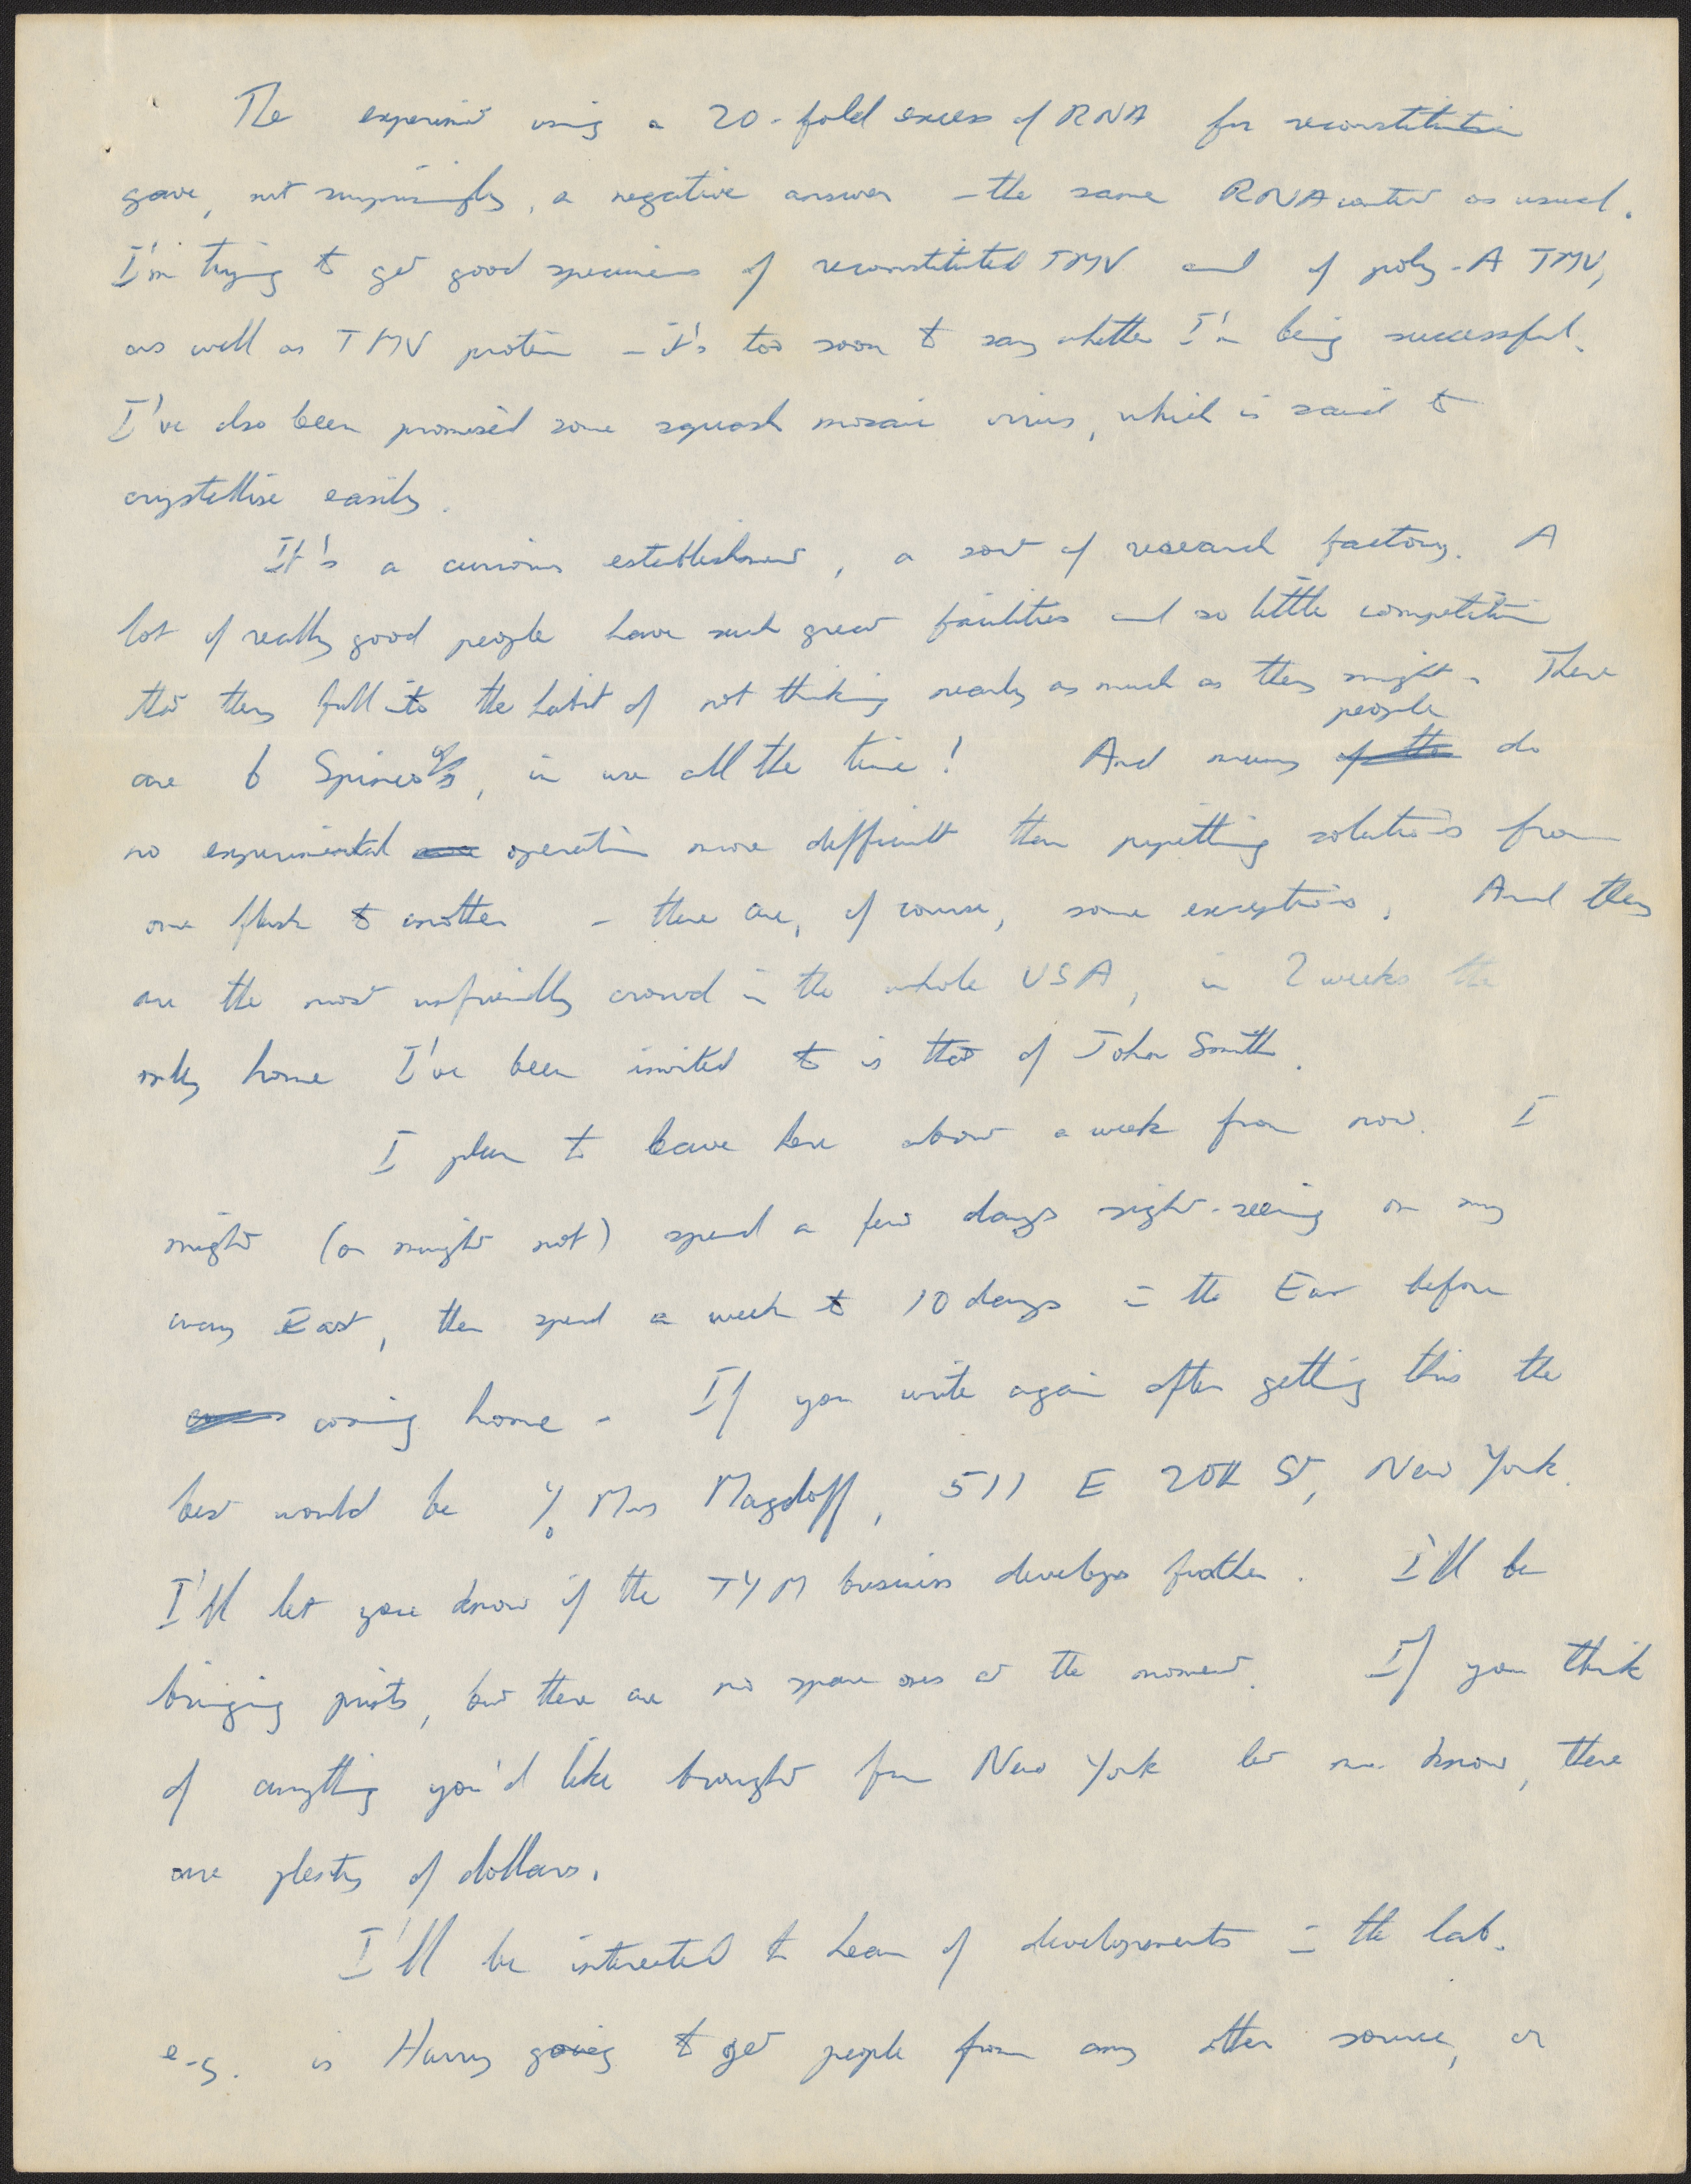 The experiment using a 20-fold excess of RNA for reconstitution
gave, not surprisingly, a negative answer - the same RNA content as usual.
I'm trying to get good specimens of reconstituted TMV and of poly-A TMV,
as well as TMV protein - it's too soon to say whether I'm being successful.
I've also been promised some squash mosaic virus, which is said to
crystallise easily.
It's a curious establishment, a sort of research factory. A
lot of really good people have such great facilities and so little competition
that they fall into the habit of not thinking nearly as much as they might. There
are 6 Spinco's, in use all the time! And many people do
no experimental operation more difficult than pipetting solutions from
one flask to another - there are, of course, some exceptions. And they
are the most unfriendly crowd in the whole USA, in 2 weeks the
only home I've been invited to is that of John Smith.
I plan to leave here about a week from now. I
might (or might not) spend a few days sight-seeing on my
way East, then spend a week to 10 days in the East before
coming home. If you write again after getting this the
best would be c/o Mrs Magdoff, 511 E 20th St, New York.
I'll let you know if the TYM business develops further. I'll be
bringing prints, but there are no spare ones at the moment. If you think
of anything you'd like brought from New York let me know, there
are plenty of dollars.
I'll be interested to hear of developments in the lab.
e.g. is Harry going to get people from any other source, or